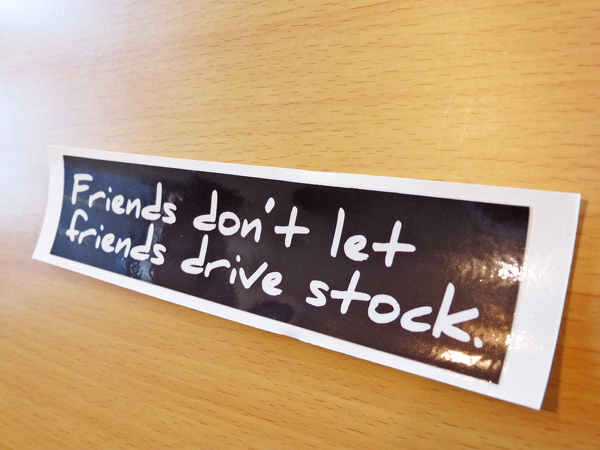 Friends don't let
friends drive stock.